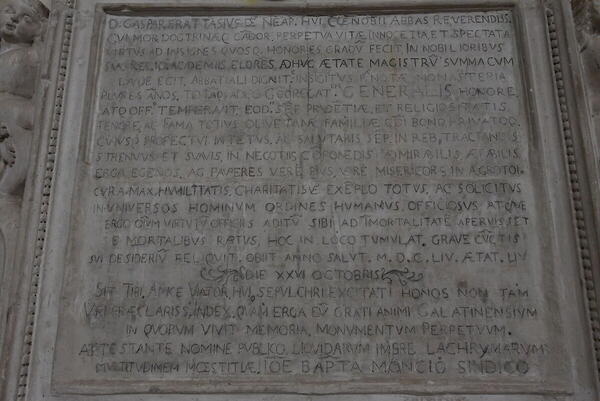 D. GASPAR ERATTASIVS DE NEAP. HVI, CŒ NOBIL ABBAS REVERENDISS.
CVI MOR, DOCTRINÆ CADOR, PERPETVA VITÆ INNOCETIA, ET SPECTATA
VIRTVS AD INSIGNES QVOSQ. HONORIES GRADV FECIT IN NOBILIORIBVS
SVÆ RELIG. ACADEMIIS ADHVC ÆTATE MAGISTRV SVMMA CVM
LAVDE EGIT, ABBATIALI DIGNIT. MONASTERIA
PLVRES ANOS, GENERALIS HONORE
OFF. TEMPERAVIT, EOD. SEP PRVDETIÆ, ET RELIGIOSITATIS
TENORE, AC FAMA TOTIVS OLIVETANÆ FAMILIÆ BONO
PROFECTVI INTETVS, AC SALVTARIS SEP. IN REB, TRACTANDIS
STRENVVS ET SVAVIS, IN NEGOTIIS COPONEDIS ADMIRABILIS, AFABILIS,
ERGA EGENOS, AC PAVPERES VERE PIVS, VERE MISERICORS IN ÆGROTOR
CVRA MAX. HVMILITATIS, CHARITATISVE EXEPLO TOTVS, AC SOLICITVS
IN VNIVERSOS HOMINVM ORDINES HVMANVS, OFFICIOSVS ATQVE
ERGO QVVM VIRTVTV OFFICIIS ADITV SIBI AD IMORTALITATE APERVISSET
E MORTALIBVS RAPTVS, HOC IN LOCO TVMVLAT. GRAVE CVCTIS
SVI DESIDERIV RELIQVIT. OBIIT ANNO SALVT. M. D. C. LIV. ÆTAT. LIV
DIE XXVI OCTOBRIS
SIT TIBI, AMICE VIATOR, HVI, SEPVLCHRI EXCITATI HONOS NON TAM
PRÆCLARISS. INDEX, QVAM ERGA EV GRATI ANIMI GALATINENSIVM
IN QVORVM VIVIT MEMORIA, MONVMENTVM PERPETVVM.
ATTESTANTE NOMINE PVBLICO, LIQVIDARVM IMBRE LACHRYMARVM
MVLTITVDINEM MŒSTITIÆ, IOE BAPTA MONCIO SINDICO